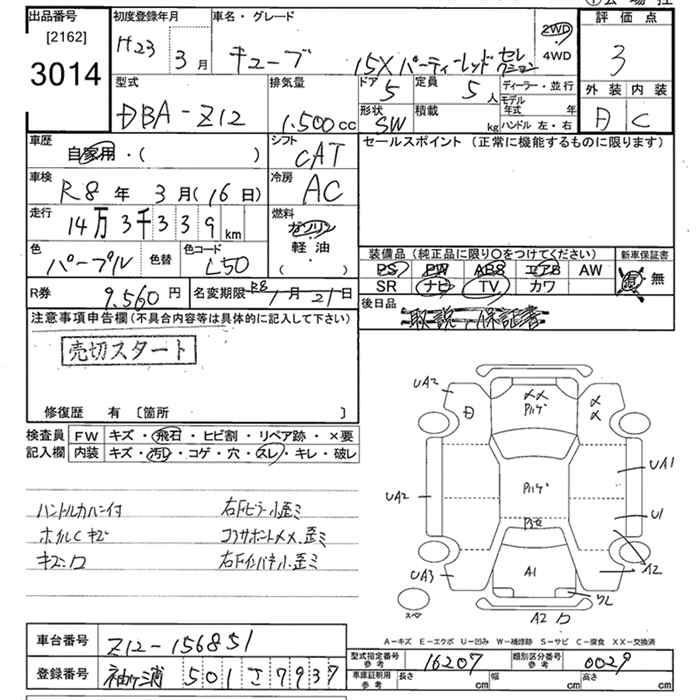 出品番号 初度登録年月 車名・グレード 評価点
[2162] H23年 3月 キューブ 15X パーティーレッド セレクション 2WD 4WD 3
3014
型式 排気量 ドア 定員 ディーラー・並行 外装 内装
DBA-Z12 1.500cc 5 5人 モデル年式 年
形状 積載 SW kg ハンドル 左・右 C
車歴 シフト セールスポイント (正常に機能するものに限ります)
自家用・( ) CAT
車検 冷房
R8年 3月(16日) AC
走行 燃料
14万3千339km ガソリン
軽・油
( )
色 色替 色コード
パープル L50
装備品 (純正品に限り〇をつけてください) 新車保証書
PS PW ABS エアB AW 有・無
SR ナビ TV カワ
R券 9.560円 名変期限 R8 1月 21日
後日品 取説・保証書
注意事項申告欄(不具合内容等は具体的に記入して下さい)
売切スタート
修復歴 有 〔箇所 〕
検査員 FW キズ・飛石・ヒビ割・リペア跡・×要
記入欄 内装 キズ・汚レ・コゲ・穴・スレ・キレ・破レ
ハンドルカバー付 右Fピラー小歪ミ
ホイルCキズ コアサポートメメ、歪ミ
キズ、ワ 右Fインパネ小、歪ミ
UA2
UA2
UA3
UA1
U1
A2
A1
A2 ワ
A-キズ E-エクボ U-凹み W-補修跡 S-サビ C-腐食 XX-交換済
車台番号 Z12-156851
登録番号 袖ヶ浦 501 さ 7937
型式指定番号 参考 16207 類別区分番号 参考 0029
車庫証明用 参考 長さ cm 幅 cm 高さ cm